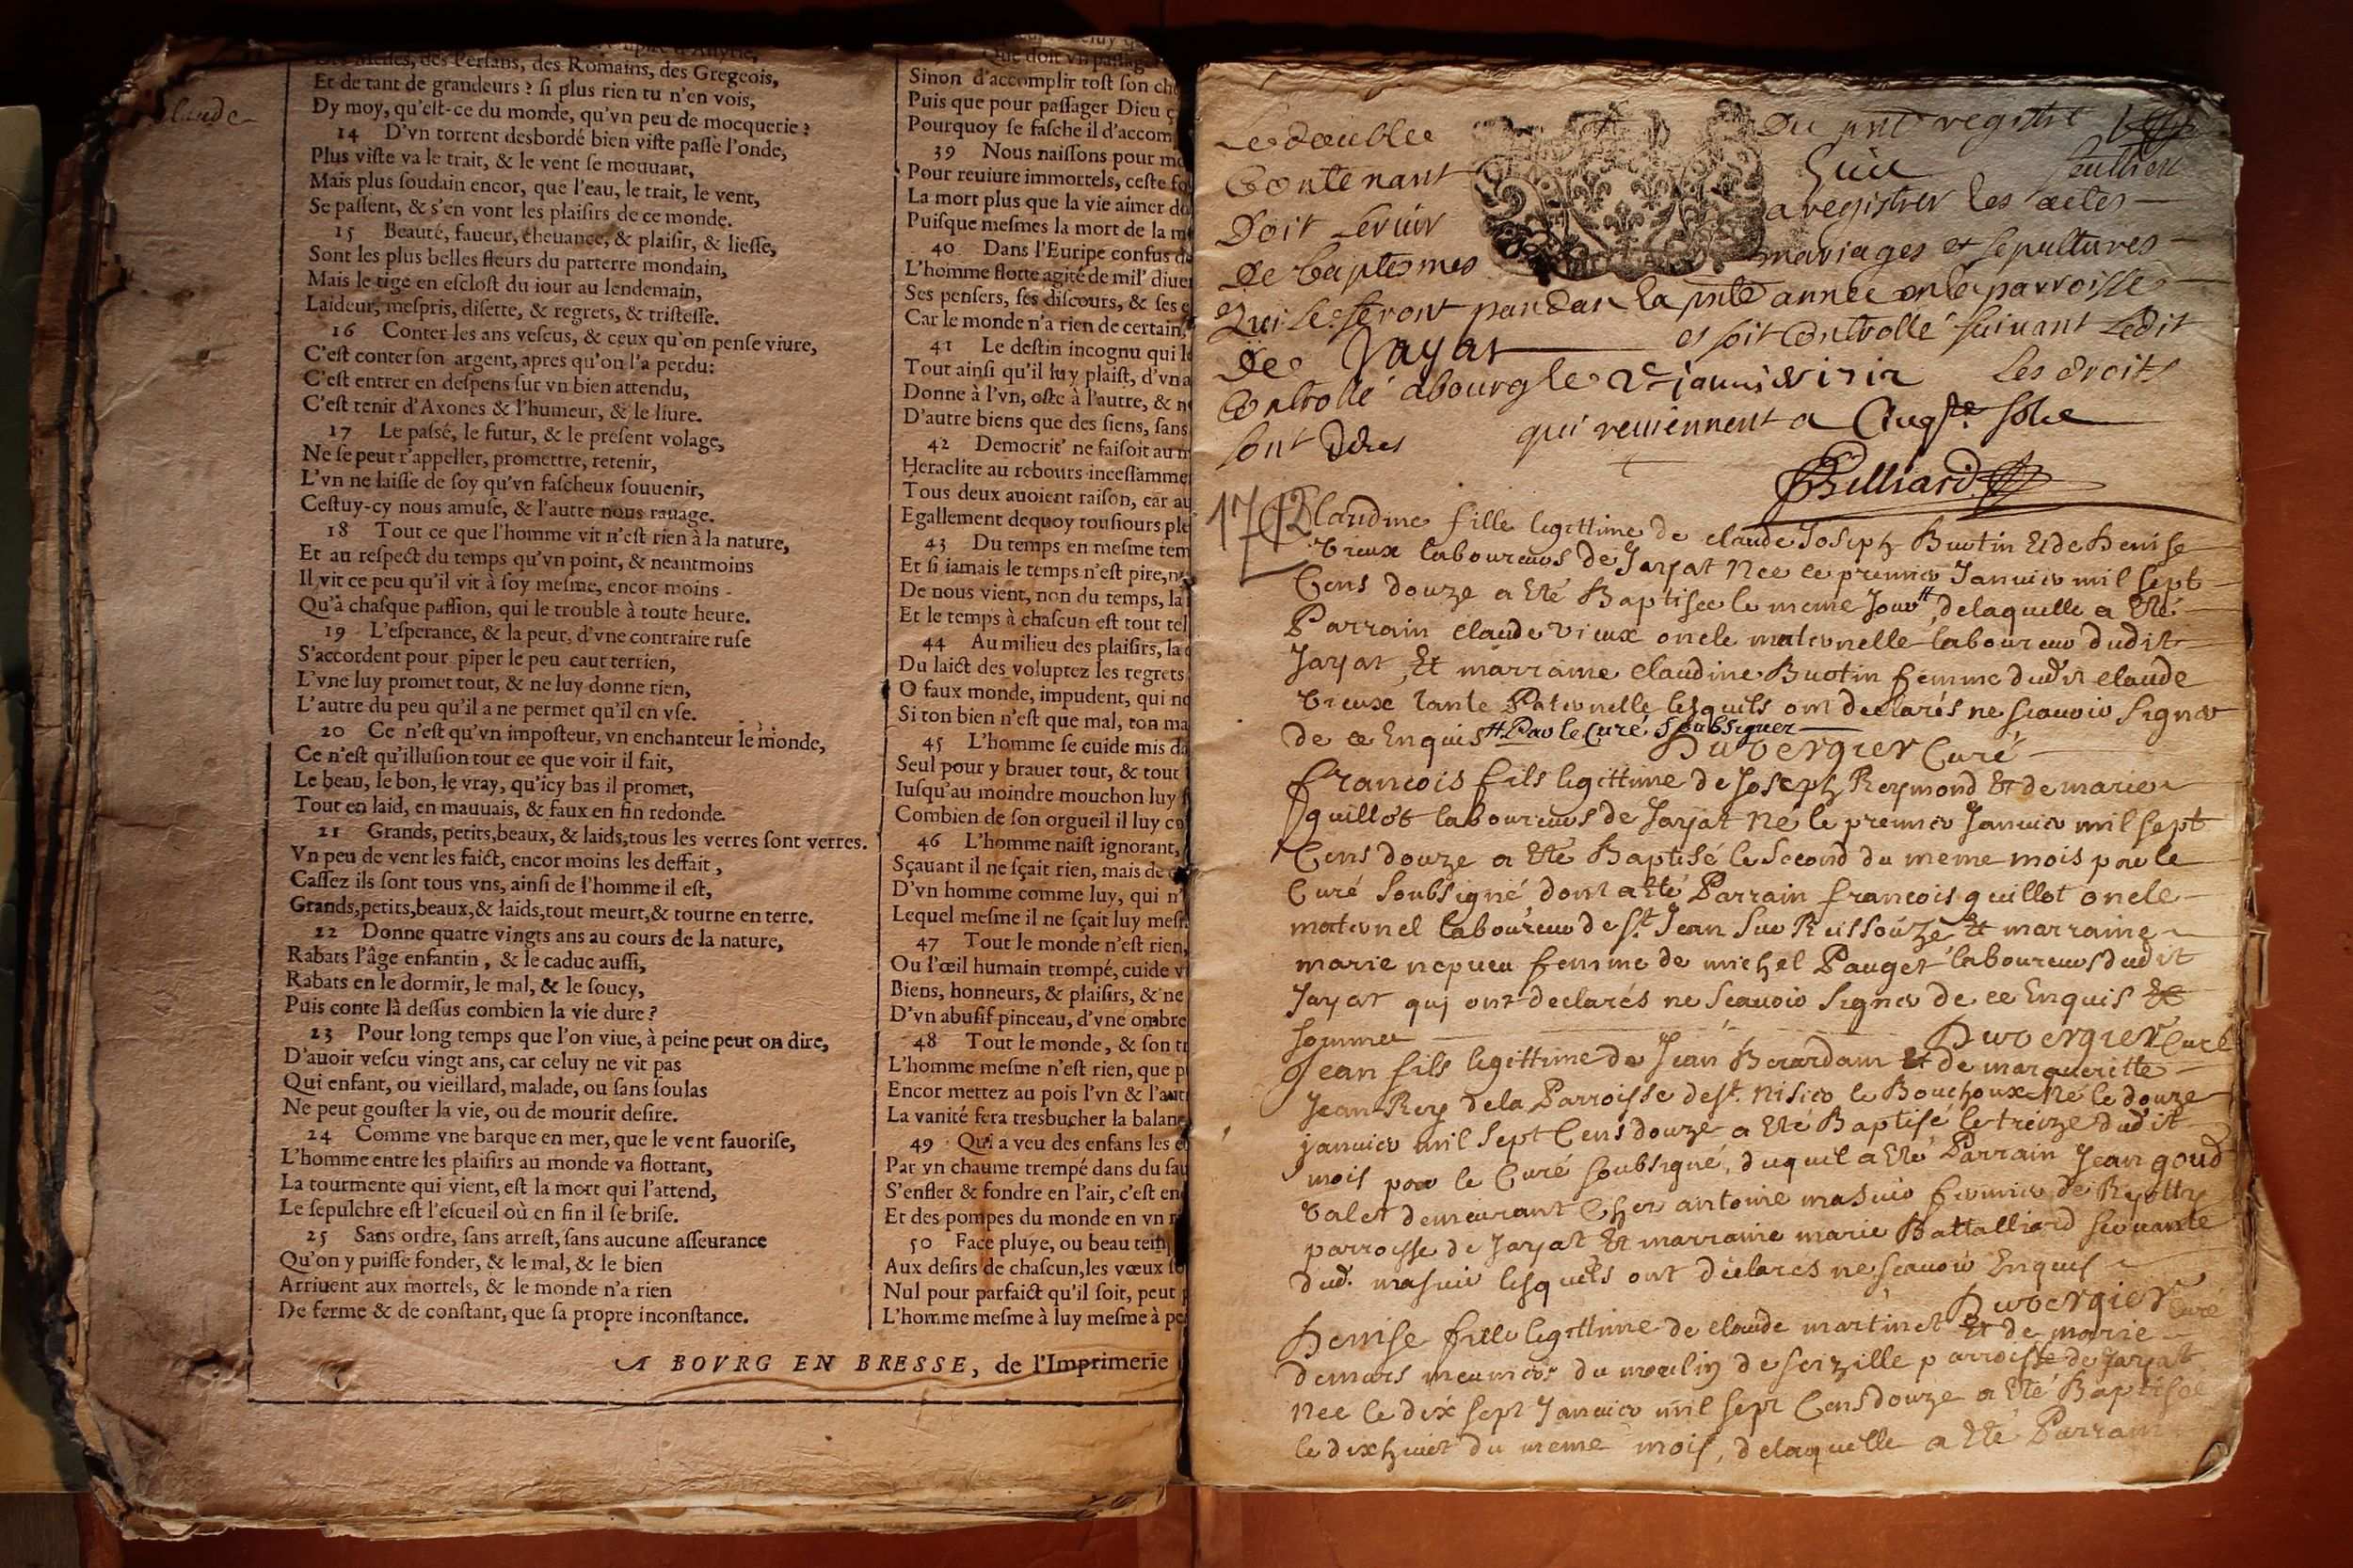 laude
des Persans, des Romains, des Gregeois,
Et de tant de grandeurs ? si plus rien tu n'en vois,
Dy moy, qu'est-ce du monde, qu'vn peu de mocquerie ?
14 D'vn torrent desbordé bien viste passe l'onde,
Plus viste va le trait, & le vent se mouuant,
Mais plus soudain encor, que l'eau, le trait, le vent,
Se passent, & s'en vont les plaisirs de ce monde.
15 Beauté, faueur, cheuance, & plaisir, & liesse,
Sont les plus belles fleurs du parterre mondain,
Mais le tige en esclost du iour au lendemain,
Laideur, mespris, disette, & regrets, & tristesse.
16 Conter les ans vescus, & ceux qu'on pense viure,
C'est conter son argent, apres qu'on l'a perdu:
C'est entrer en despens sur vn bien attendu,
C'est tenir d'Axones & l'humeur, & le liure.
17 Le passé, le futur, & le present volage,
Ne se peut r'appeller, promettre, retenir,
L'vn ne laisse de soy qu'vn fascheux souuenir,
Cestuy-cy nous amuse, & l'autre nous rauage.
18 Tout ce que l'homme vit n'est rien à la nature,
Et au respect du temps qu'vn point, & neantmoins
Il vit ce peu qu'il vit à soy mesme, encor moins
Qu'à chasque passion, qui le trouble à toute heure.
19 L'esperance, & la peur, d'vne contraire ruse
S'accordent pour piper le peu caut terrien,
L'vne luy promet tout, & ne luy donne rien,
L'autre du peu qu'il a ne permet qu'il en vse.
20 Ce n'est qu'vn imposteur, vn enchanteur le monde,
Ce n'est qu'illusion tout ce que voir il fait,
Le beau, le bon, le vray, qu'icy bas il promet,
Tout en laid, en mauuais, & faux en fin redonde.
21 Grands, petits, beaux, & laids, tous les verres sont verres.
Vn peu de vent les faict, encor moins les deffait,
Cassez ils sont tous vns, ainsi de l'homme il est,
Grands, petits, beaux, & laids, tout meurt, & tourne en terre.
22 Donne quatre vingts ans au cours de la nature,
Rabats l'âge enfantin, & le caduc aussi,
Rabats en le dormir, le mal, & le soucy,
Puis conte là dessus combien la vie dure ?
23 Pour long temps que l'on viue, à peine peut on dire,
D'auoir vescu vingt ans, car celuy ne vit pas
Qui enfant, ou vieillard, malade, ou sans soulas
Ne peut gouster la vie, ou de mourir desire.
24 Comme vne barque en mer, que le vent fauorise,
L'homme entre les plaisirs au monde va flottant,
La tourmente qui vient, est la mort qui l'attend,
Le sepulchre est l'escueil où en fin il se brise.
25 Sans ordre, sans arrest, sans aucune asseurance
Qu'on y puisse fonder, & le mal, & le bien
Arriuent aux mortels, & le monde n'a rien
De ferme & de constant, que sa propre inconstance.
Que doit vn passager
Sinon d'accomplir tost son
Puis que pour passager Dieu
Pourquoy se fasche il
39 Nous naissons pour
Pour reuiure immortels, ceste
La mort plus que la vie aimer
Puisque mesmes la mort de la
40 Dans l'Euripe confus
L'homme flotte agité de mil'
Ses pensers, ses discours, & ses
Car le monde n'a rien de certain,
41 Le destin incognu qui
Tout ainsi qu'il luy plaist, d'vn
Donne à l'vn, oste à l'autre, &
D'autre biens que des siens, sans
42 Democrit' ne faisoit au
Heraclite au rebours
Tous deux auoient raison, car
Egallement dequoy tousiours
43 Du temps en mesme
Et si iamais le temps n'est pire,
De nous vient, non du temps, la
Et le temps à chascun est tout tel
44 Au milieu des plaisirs, la
Du laict des voluptez les regrets
O faux monde, impudent, qui
Si ton bien n'est que mal, ton
45 L'homme se cuide mis
Seul pour y brauer tout, & tout
Iusqu'au moindre mouchon luy
Combien de son orgueil il luy
46 L'homme naist ignorant,
Sçauant il ne sçait rien, mais de
D'vn homme comme luy, qui
Lequel mesme il ne sçait luy
47 Tout le monde n'est rien,
Ou l'œil humain trompé, cuide
Biens, honneurs, & plaisirs, & ne
D'vn abusif pinceau, d'vne ombre
48 Tout le monde, & son
L'homme mesme n'est rien, que
Encor mettez au pois l'vn &
La vanité fera tresbucher la
49 Qui a veu des enfans les
Par vn chaume trempé dans du
S'enfler & fondre en l'air, c'est
Et des pompes du monde en vn
50 Face pluye, ou beau
Aux desirs de chascun, les vœux
Nul pour parfaict qu'il soit, peut
L'homme mesme à luy mesme à
A BOVRG EN BRESSE, de l'Imprimerie
Le double Du pnt registre
Contenant huit feulliet
Doit servir a registrer les actes
De baptesmes mariages et sepultures
qui se feront pandan la pnte année en la parroisse
De Jayat et soit controllé suivant ledit
Controllé a bourg le 2e janvier 1712 les droits
sont qui reviennent a
Billiard
1712
Claudine fille legittime de claude Joseph Buotin et de Denise
vieux laboureurs de Jayat née ce premier Janvier mil sept
Cens douze a été Baptisee le meme Jour # delaquelle a été
Parrain claude vieux oncle maternelle laboureur dudit
Jayat, Et marraine claudine Buotin femme dudit claude
vieux tante Paternelle lesquels ont declarés ne scavoir signer
de ce Enquis # Par le Curé soubsigner
Duvergier Curé
francois fils legittime de Joseph Reymond Et de marie
guillot laboureurs de Jayat né le premier Janvier mil sept
Cens douze a été Baptisé le second du meme mois par le
Curé soubsigné, dont a été Parrain francois guillot oncle
maternel laboureur de st. Jean sur Reissouze Et marraine
marie nepveu femme de michel Pauget laboureurs dudit
Jayat qui ont declarés ne scavoir signer de ce Enquis Et
sommer Duvergier Curé
Jean fils legittime de Jean Berardam Et de margueritte
Jean Rey dela Parroisse de st. nisier le Bouchoux né le douze
janvier mil sept Cens douze a été Baptisé le treize dudit
mois par le Curé soubsigné, duquel a été Parrain Jean goud
valet demeurant Chez antoine masuir fermier de
parroisse de Jayat Et marraine marie Battalliard servante
dud. masuir lesquels ont declarés ne scavoir Enquis
Duvergier Curé
Denise fille legittime de claude martinet Et de marie
demars meunier du moulin de seizille parroisse de Jayat
née le dix sept Janvier mil sept Cens douze a été Baptisée
le dixhuict du meme mois, delaquelle a été Parrain